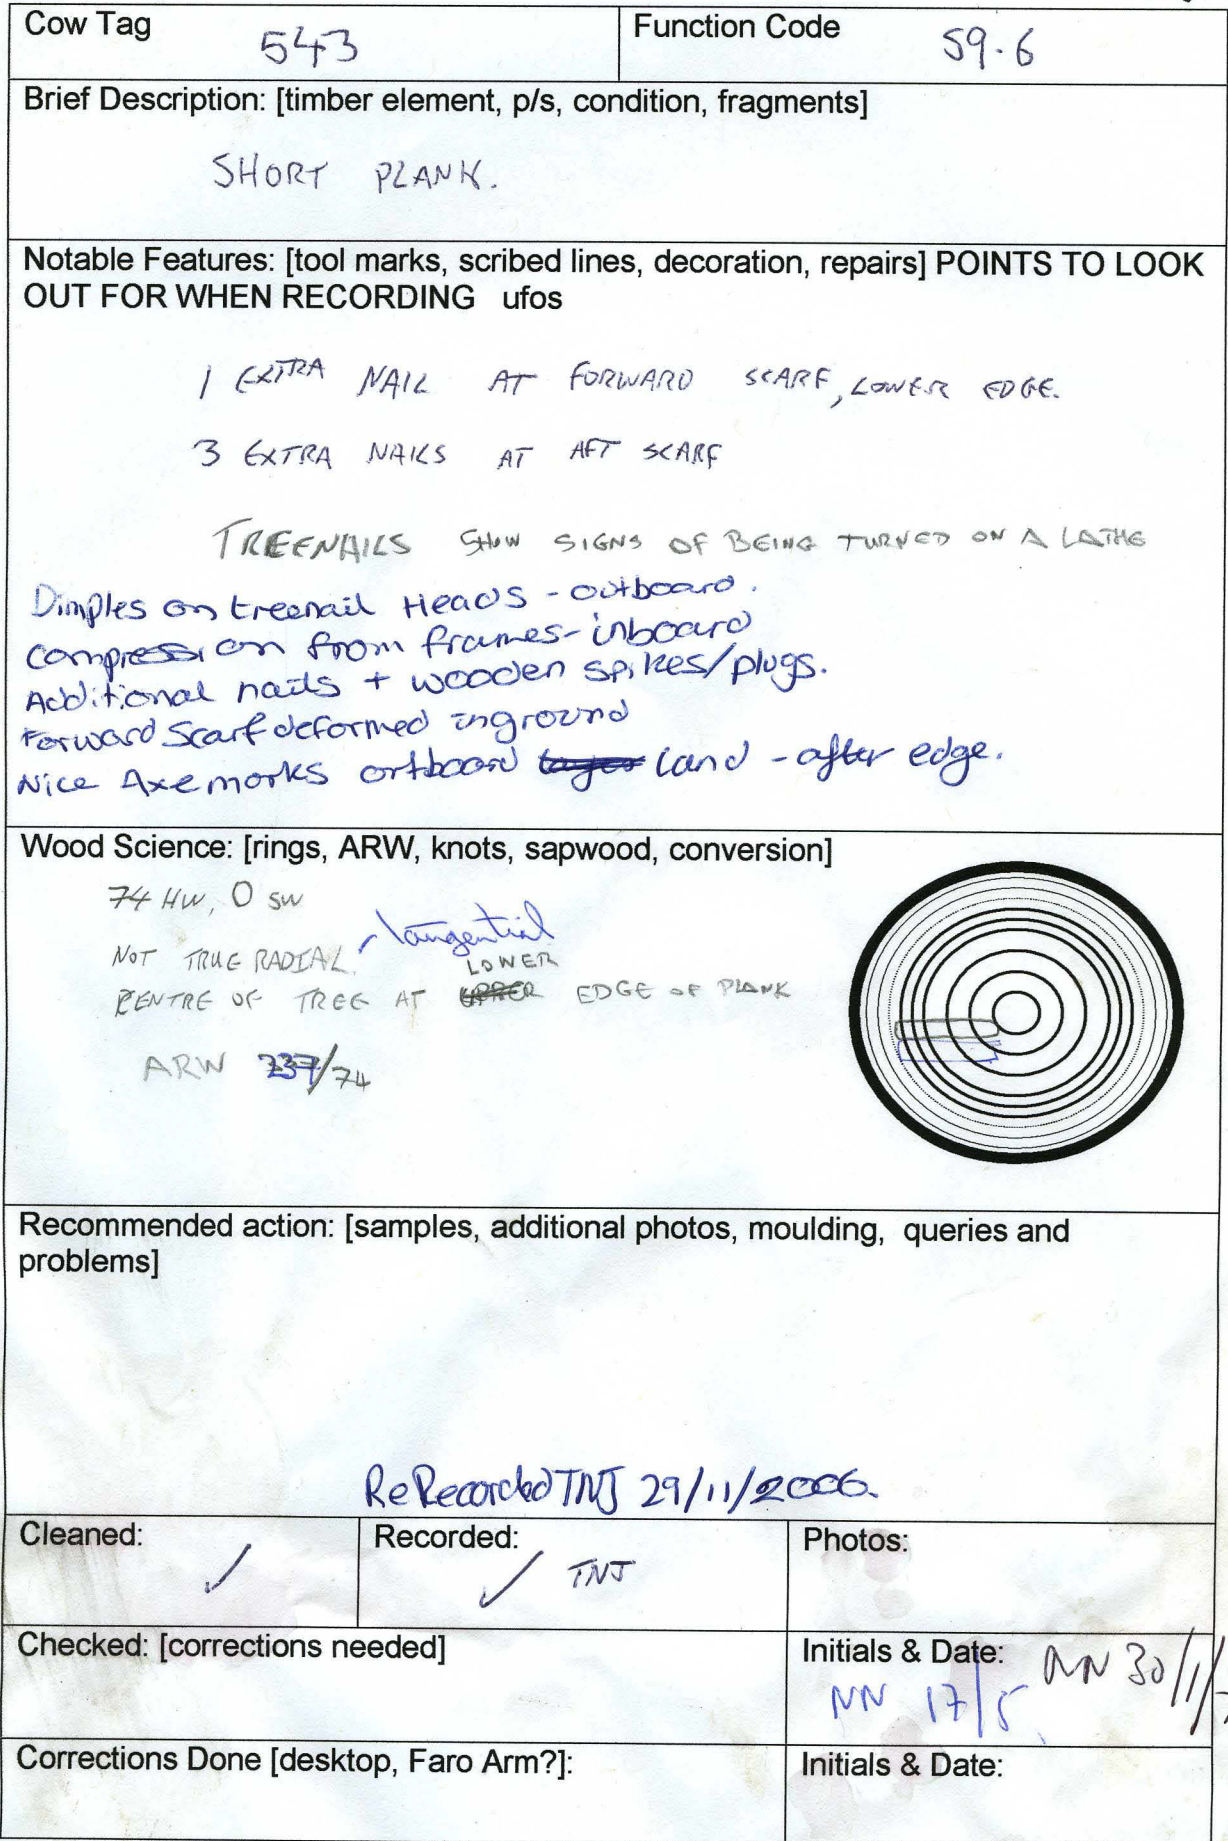 Cow Tag 543 Function Code S9.6
Brief Description: [timber element, p/s, condition, fragments]
SHORT PLANK.
Notable Features: [tool marks, scribed lines, decoration, repairs] POINTS TO LOOK
OUT FOR WHEN RECORDING ufos
1 EXTRA NAIL AT FORWARD SCARF, LOWER EDGE.
3 EXTRA NAILS AT AFT SCARF
TREENAILS SHOW SIGNS OF BEING TURNED ON A LATHE
Dimples on treenail Heads - outboard.
compression from frames - inboard
Additional nails + wooden spikes/plugs.
Forward Scarf deformed inground
Nice Axe marks outboard land - after edge.
Wood Science: [rings, ARW, knots, sapwood, conversion]
74 HW, 0 SW
NOT TRUE RADIAL. - tangential
CENTRE OF TREE AT UPPER LOWER EDGE OF PLANK
ARW 237/74
Recommended action: [samples, additional photos, moulding, queries and
problems]
ReRecorded TNJ 29/11/2006.
Cleaned: ✓ Recorded: ✓ TNJ Photos:
Checked: [corrections needed] Initials & Date: NN 30/1/
NN 17/5
Corrections Done [desktop, Faro Arm?]: Initials & Date: